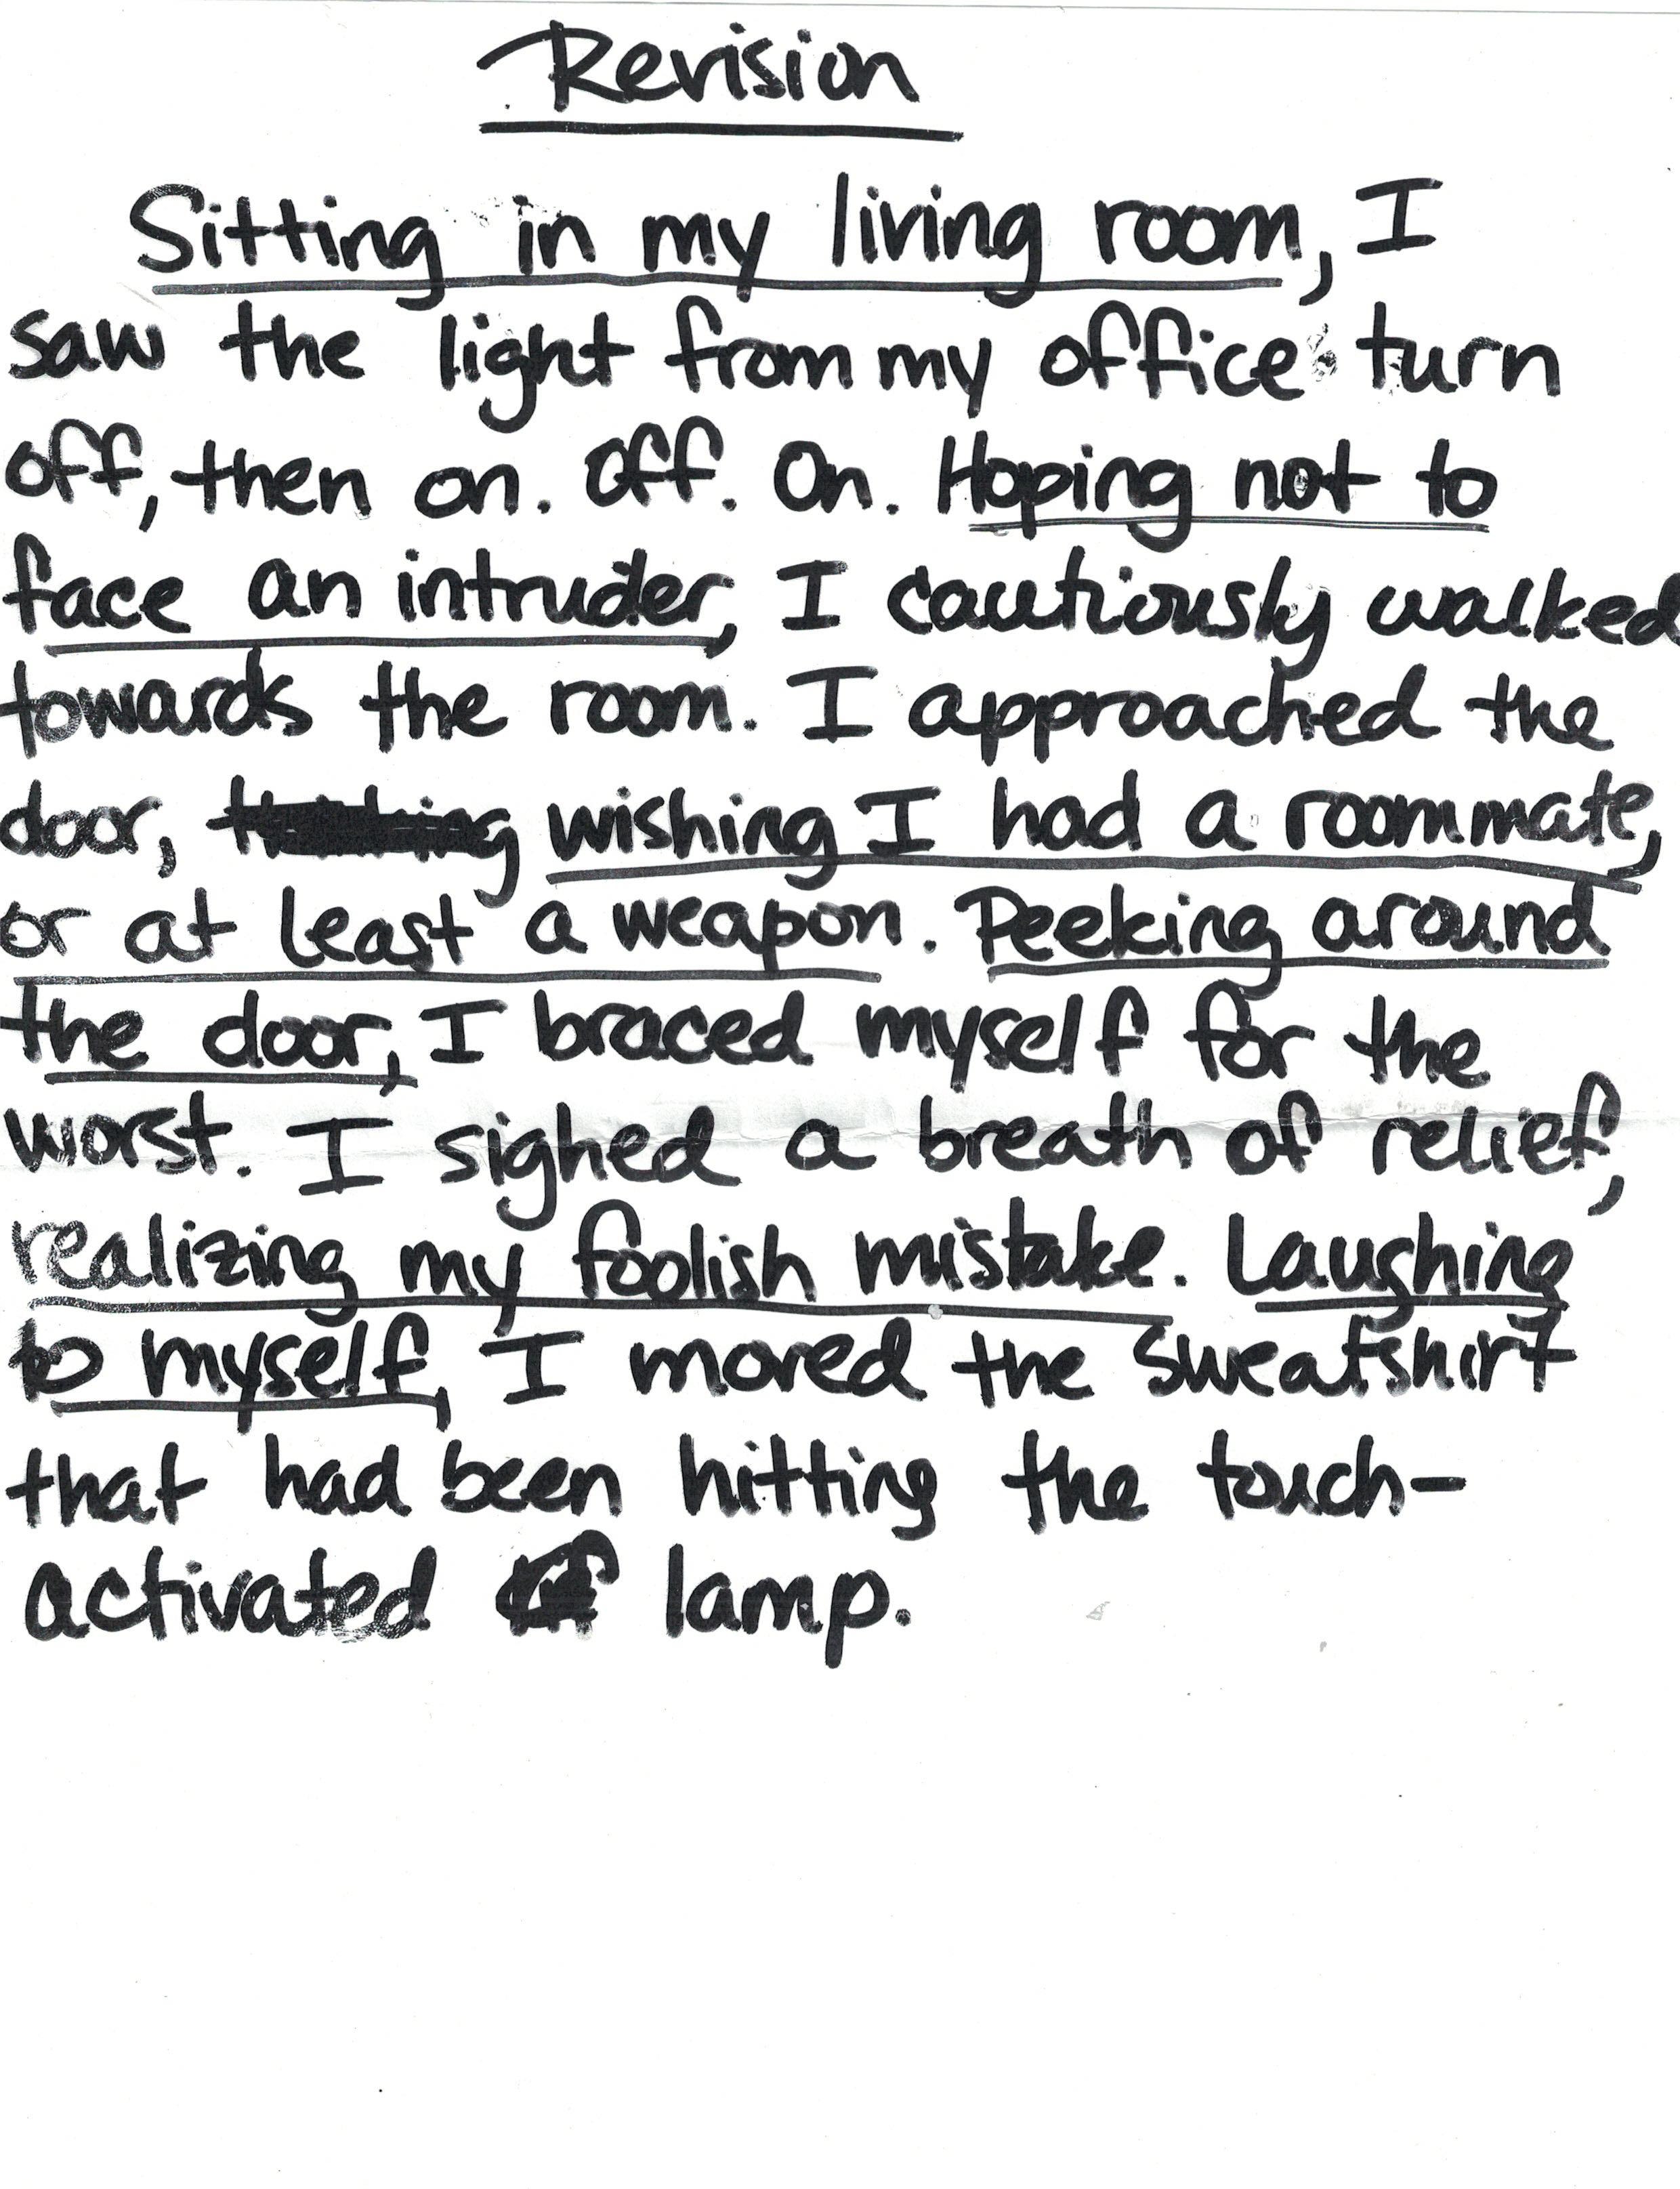 Revision
Sitting in my living room, I
saw the light from my office turn
off, then on. Off. On. Hoping not to
face an intruder, I cautiously walked
towards the room. I approached the
door, wishing I had a roommate,
or at least a weapon. Peeking around
the door, I braced myself for the
worst. I sighed a breath of relief,
realizing my foolish mistake. Laughing
to myself, I moved the sweatshirt
that had been hitting the touch-
activated lamp.